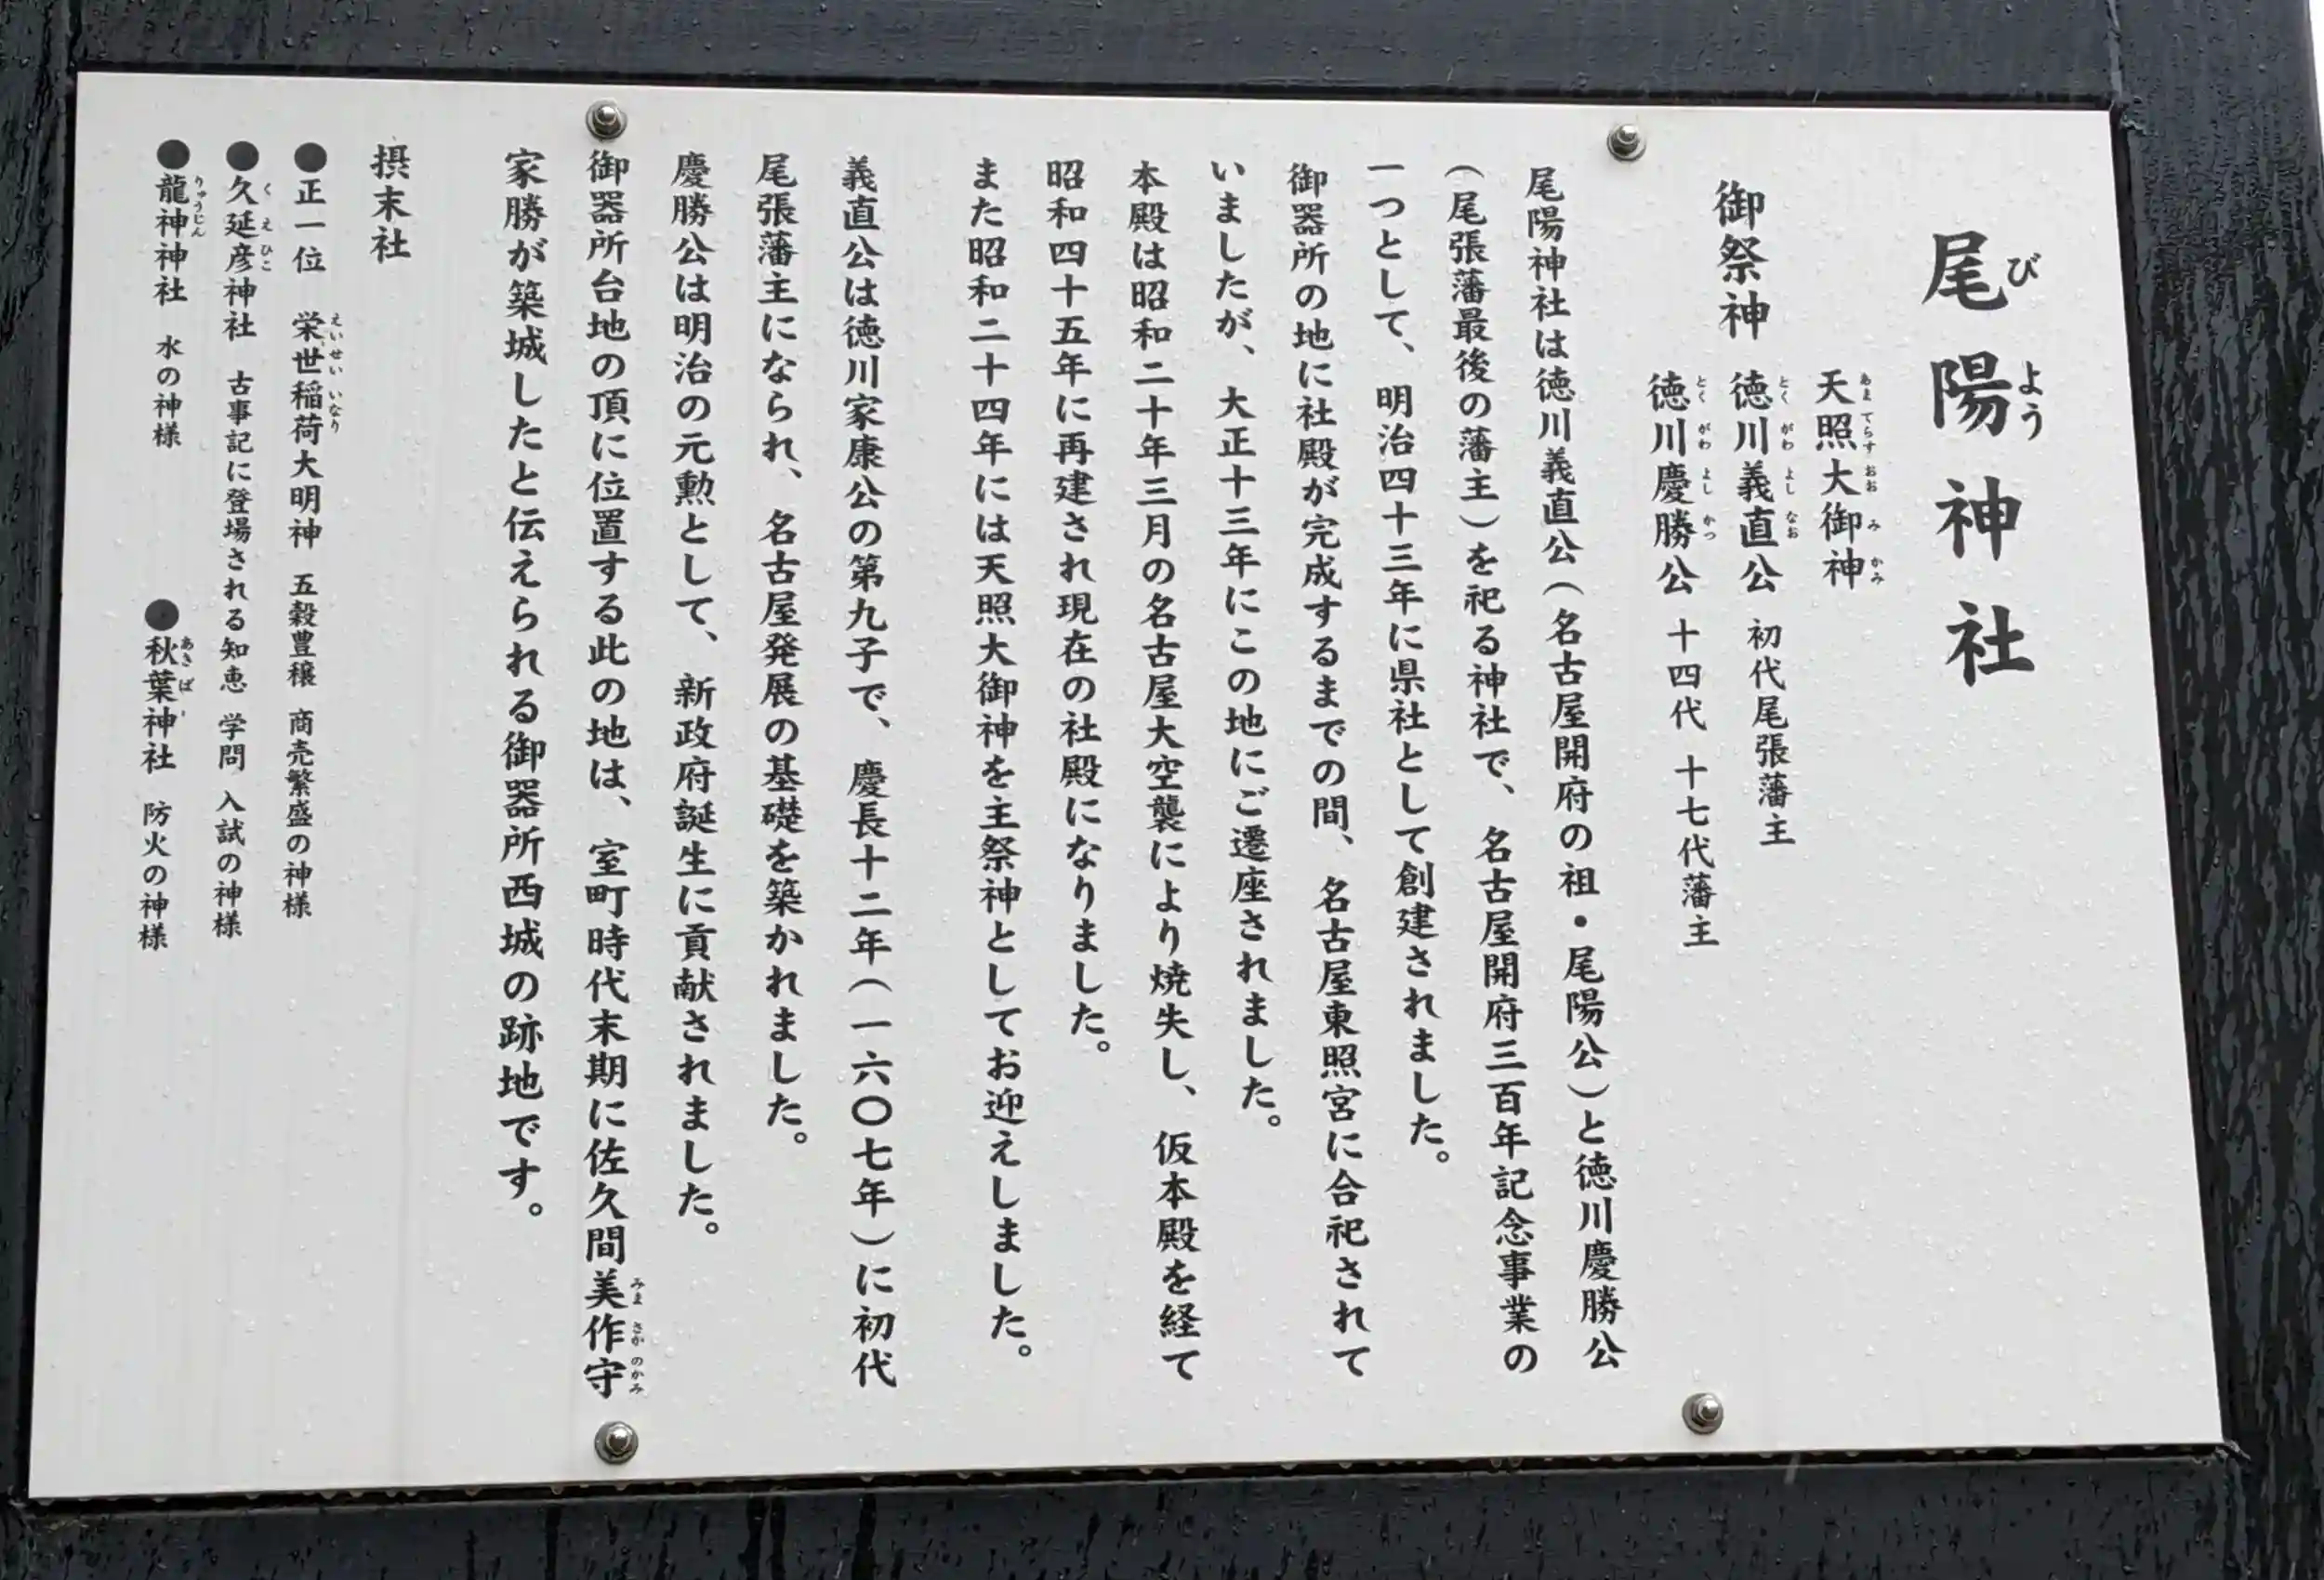 尾陽神社
びよう
御祭神
天照大御神
あまてらすおおみかみ
徳川義直公 初代尾張藩主
とくがわよしなお
徳川慶勝公 十四代 十七代藩主
とくがわよしかつ
尾陽神社は徳川義直公（名古屋開府の祖・尾陽公）と徳川慶勝公
（尾張藩最後の藩主）を祀る神社で、名古屋開府三百年記念事業の
一つとして、明治四十三年に県社として創建されました。
御器所の地に社殿が完成するまでの間、名古屋東照宮に合祀されて
いましたが、大正十三年にこの地にご遷座されました。
本殿は昭和二十年三月の名古屋大空襲により焼失し、仮本殿を経て
昭和四十五年に再建され現在の社殿になりました。
また昭和二十四年には天照大御神を主祭神としてお迎えしました。
義直公は徳川家康公の第九子で、慶長十二年（一六〇七年）に初代
尾張藩主になられ、名古屋発展の基礎を築かれました。
慶勝公は明治の元勲として、新政府誕生に貢献されました。
御器所台地の頂に位置する此の地は、室町時代末期に佐久間美作守
みまさかのかみ
家勝が築城したと伝えられる御器所西城の跡地です。
摂末社
●正一位 栄世稲荷大明神 五穀豊穣 商売繁盛の神様
えいせいいなり
●久延彦神社 古事記に登場される知恵 学問 入試の神様
くえひこ
●龍神神社 水の神様
りゅうじん
●秋葉神社 防火の神様
あきば